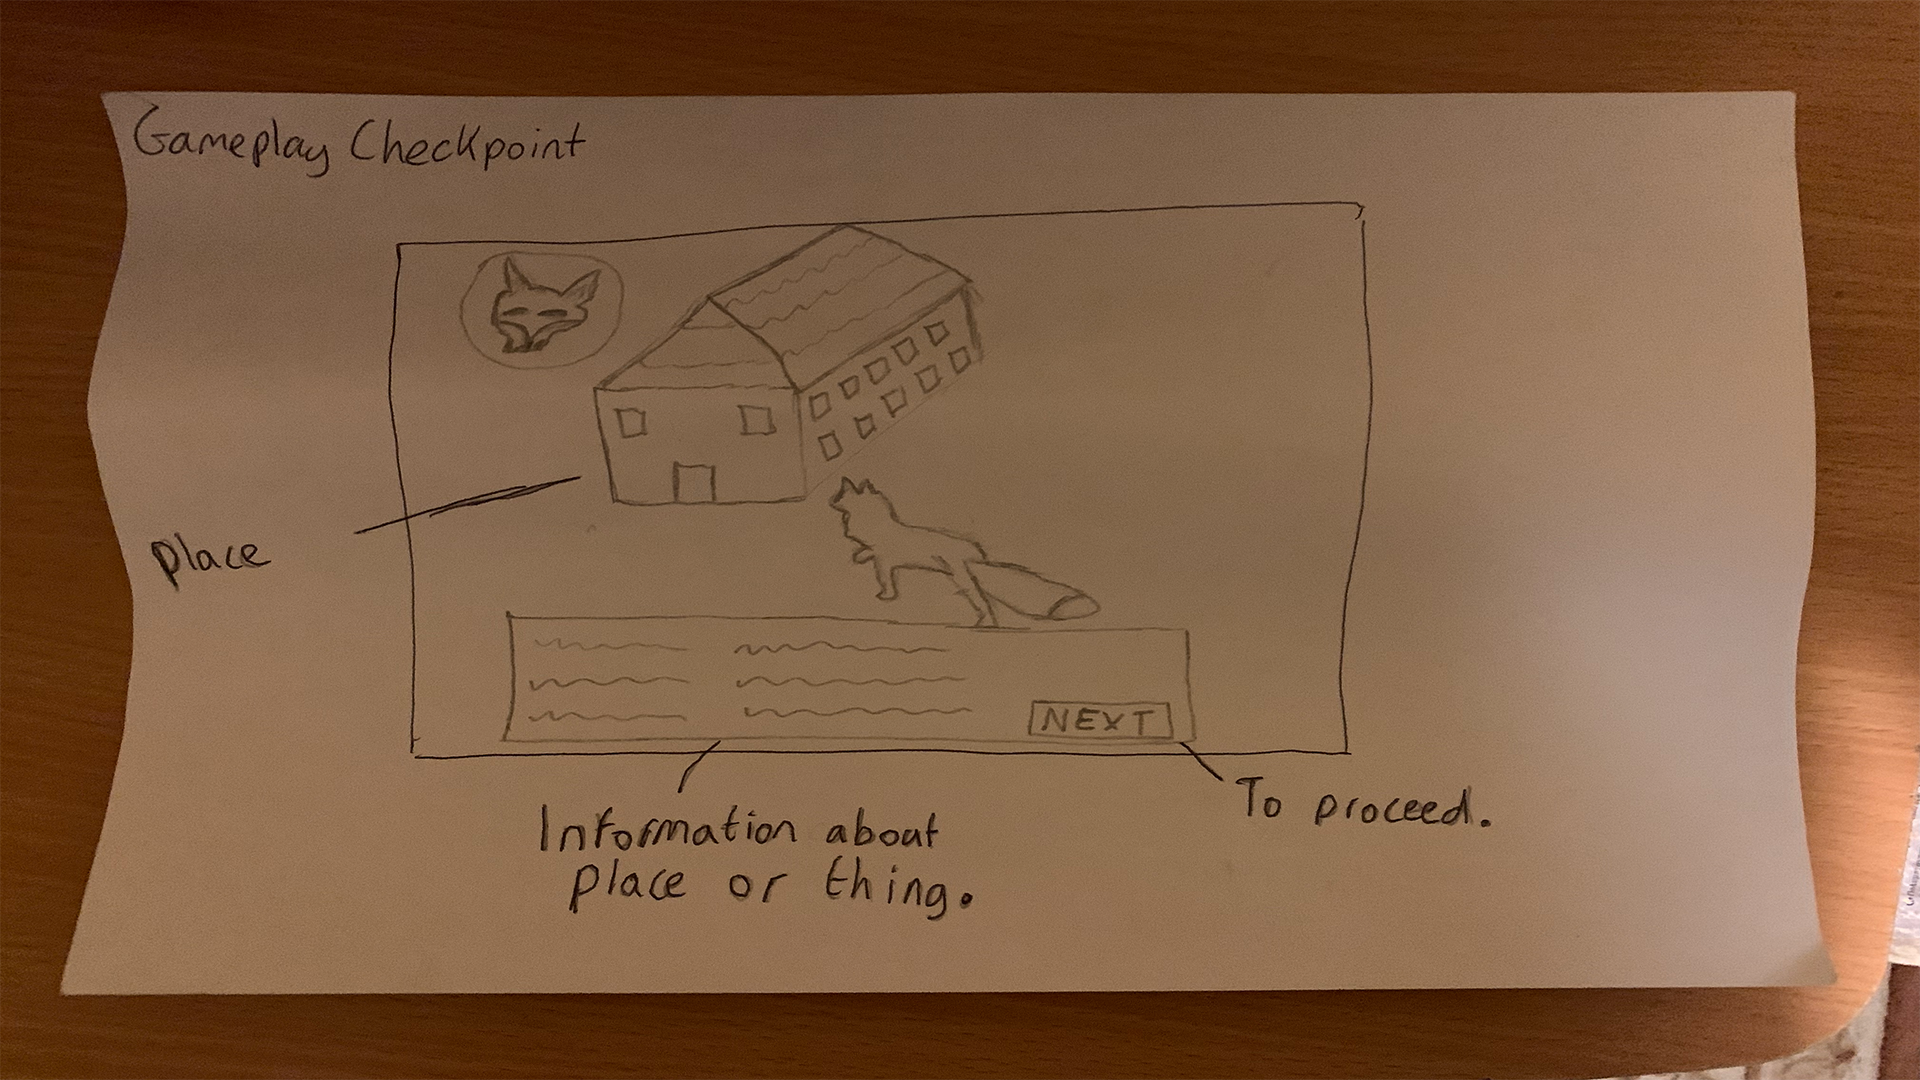 Gameplay Checkpoint
place
NEXT
Information about
place or thing.
To proceed.